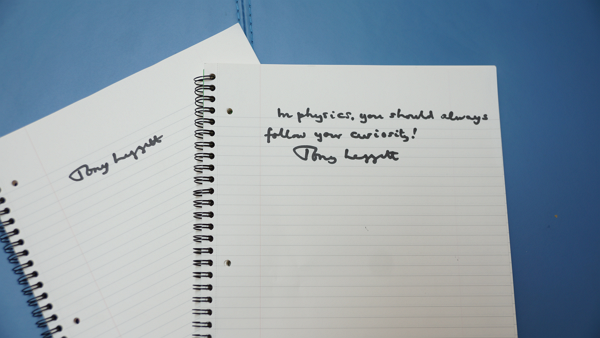 Tony Leggett
In physics, you should always
follow your curiosity!
Tony Leggett